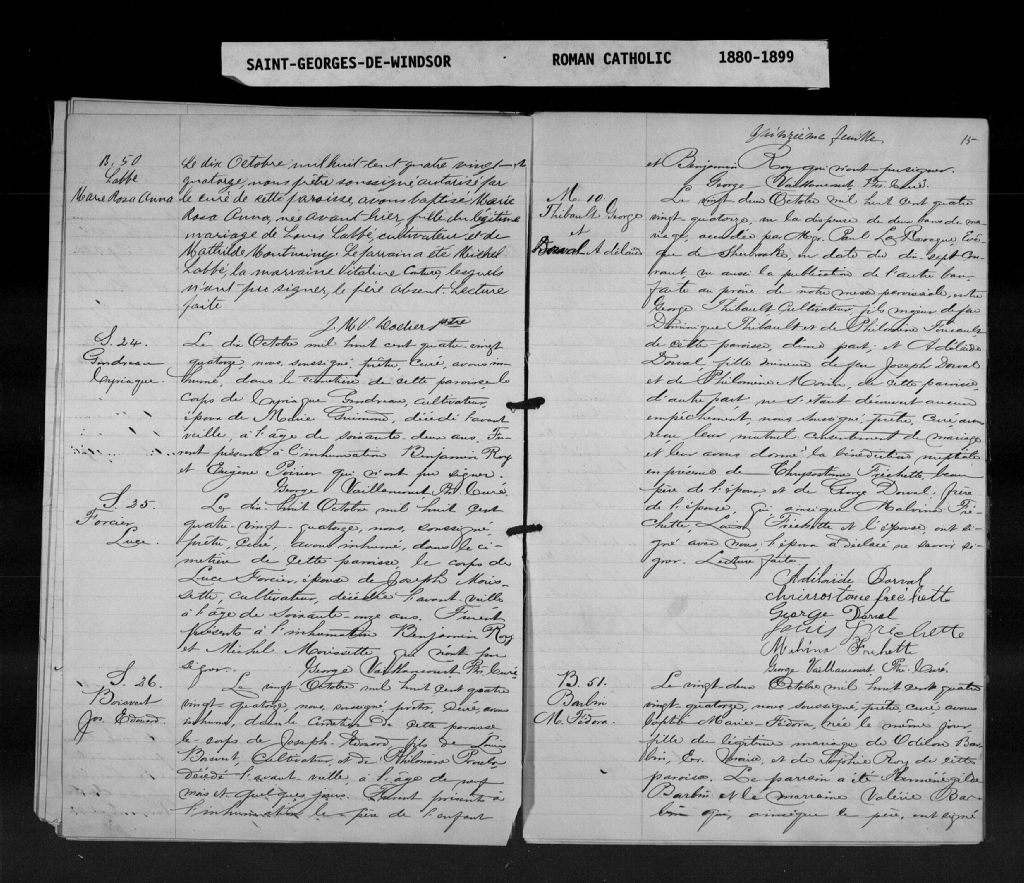 SAINT-GEORGES-DE-WINDSOR ROMAN CATHOLIC 1880-1899
B. 50
Labbé
Marie Rosa Anna
Le dix Octobre mil huit cent quatre vingt
quatorze, nous prêtre soussigné autorisé par
le curé de cette paroisse, avons baptisé Marie
Rosa Anna, née avant hier, fille du légitime
mariage de Louis Labbé, cultivateur et de
Mathilde Le parrain a été Michel
Labbé, la marraine Vitaline lesquels
n'ont pu signer, le père absent. Lecture
faite
J. H. V. ptre
S. 24.
Gendreau
Cyriaque.
Le dix Octobre mil huit cent quatre-vingt
quatorze, nous, soussigné, prêtre, curé, avons in-
humé, dans le cimetière de cette paroisse le
corps de Cyriaque Gendreau, cultivateur,
époux de Marie Guimond, décédé l'avant
veille, à l'âge de soixante-deux ans. Fu-
rent présents à l'inhumation Benjamin Roy
et Eugène Poirier qui n'ont pu signer.
George Vaillancourt Ptr. Curé.
S. 25.
Forcier
Luce.
Le dix-huit Octobre mil huit cent
quatre-vingt-quatorze, nous, soussigné,
prêtre, curé, avons inhumé, dans le ci-
metière de cette paroisse, le corps de
Luce Forcier, épouse de Joseph Moris-
sette, cultivateur, décédée l'avant veille
à l'âge de soixante-onze ans. Furent
présents à l'inhumation Benjamin Roy
et Michel Morissette qui n'ont su
signer. George Vaillancourt Ptr. Curé
S. 26.
Boisvert
Jos. Edouard.
Le vingt Octobre mil huit cent quatre
vingt-quatorze, nous, soussigné, prêtre, curé, avons
inhumé, dans le cimetière de cette paroisse
le corps de Joseph Edouard, fils de Louis
Boisvert, cultivateur, et de Philomène
décédé l'avant-veille à l'âge de neuf
mois et quelques jours. Furent présents à
l'inhumation le père de l'enfant
Quinzième feuille. 15
et Benjamin Roy qui n'ont pu signer.
George Vaillancourt Ptr. Curé.
M. 10
Thibault George
et
Dorval Adélaïde
Le vingt deux Octobre mil huit cent quatre
vingt-quatorze, vu la dispense de deux bans de ma-
riage, accordée par Mgr. Paul LaRocque Evê-
que de Sherbrooke, en date du dix-sept cou-
rant, vu aussi la publication de l'autre ban
faite au prône de notre messe paroissiale, entre
George Thibault Cultivateur, fils majeur de feu
Dominique Thibault et de Philomène
de cette paroisse, d'une part; et Adélaïde
Dorval, fille mineure de feu Joseph Dorval
et de Philomène Morin, de cette paroisse,
d'autre part, ne s'étant découvert aucun
empêchement, nous soussigné prêtre, curé, avons
reçu leur mutuel consentement de mariage
et leur avons donné la bénédiction nuptiale
en présence de Chrysostome Fréchette, beau-
père de l'époux, et de George Dorval, frère
de l'épouse, qui ainsi que Malvina Fré-
chette, Louis Fréchette et l'épouse, ont si-
gné avec nous, l'époux a déclaré ne savoir si-
gner. Lecture faite.
Adélaïde Dorval
Chrirrostome frechette
George Dorval
Louis Frechette
Melvina Frechett
George Vaillancourt Ptr. Curé.
B. 51.
Barbin
M. Fédora.
Le vingt-deux Octobre mil huit cent quatre
vingt quatorze, nous, soussigné, prêtre, curé, avons
baptisé Marie Fédora, née le même jour,
fille du légitime mariage de Odilon Bar-
bin, et de Sophie Roy de cette
paroisse. Le parrain a été Herménégilde
Barbin et la marraine Valérie Bar-
bin qui, ainsi que le père, ont signé